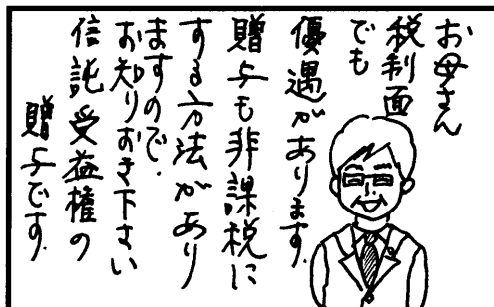 お母さん
税制面
でも
優遇があります。
贈与も非課税に
する方法があり
ますので、
お知りおき下さい
信託受益権の
贈与です。